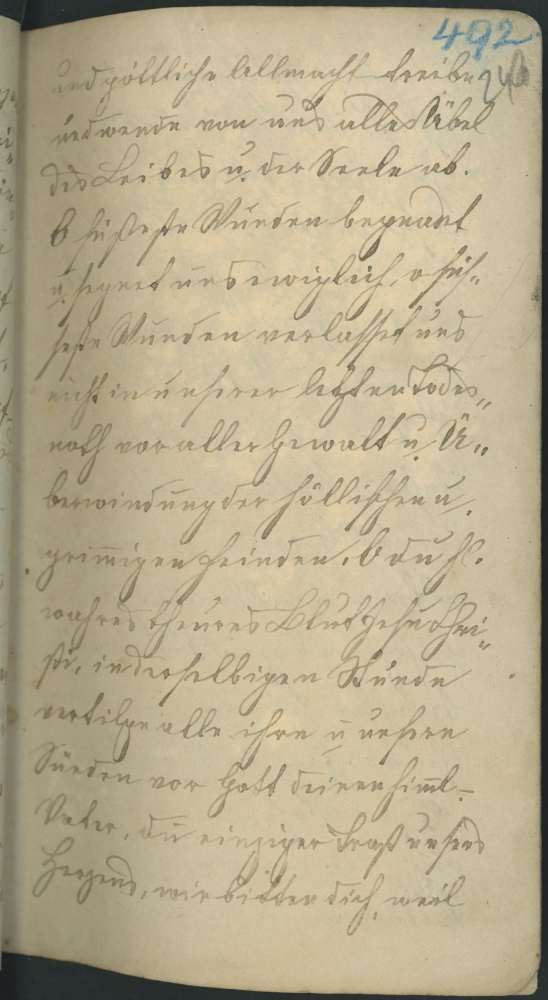 492
246
und göttliche Allmacht treibe
und wende von uns alle Übel
des Leibes u. der Seele ab.
O süßeste Wunden begnadet
u. segnet uns ewiglich, o süs„
seste Wunden verlasset uns
nicht in unserer letzten Todes„
noth vor aller Gewalt u. Ü„
berwindung der höllischen u.
grimigen Feinden. O du hl.
wahres theures Blut Jesu Chri„
sti, in derselbigen Stunde
vertilge alle ihre u unsere
Sünden vor Gott deinen himl-
Vater, du einziger Trost unsers
Herzens, wir bitten dich, weil